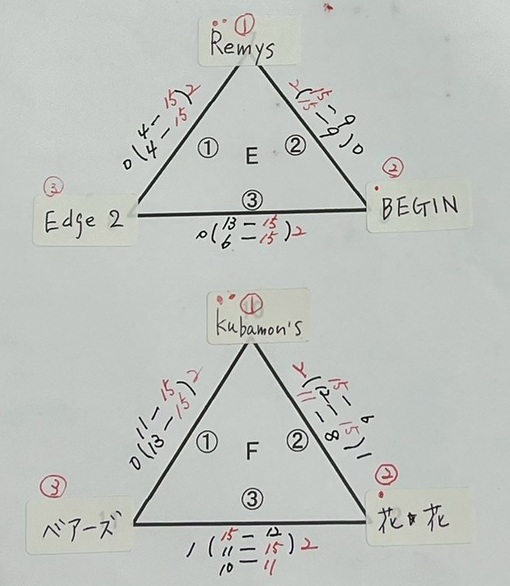 ①
Remys
0(4-15)2
4-15
2(15-9)0
15-9
① E ②
③
③
Edge 2
②
BEGIN
0(13-15)2
6-15
①
Kubamon's
0(11-15)2
13-15
2(15-6)1
12-15
11-8
① F ②
③
③
ベアーズ
②
花★花
1(15-12)2
11-15
10-11